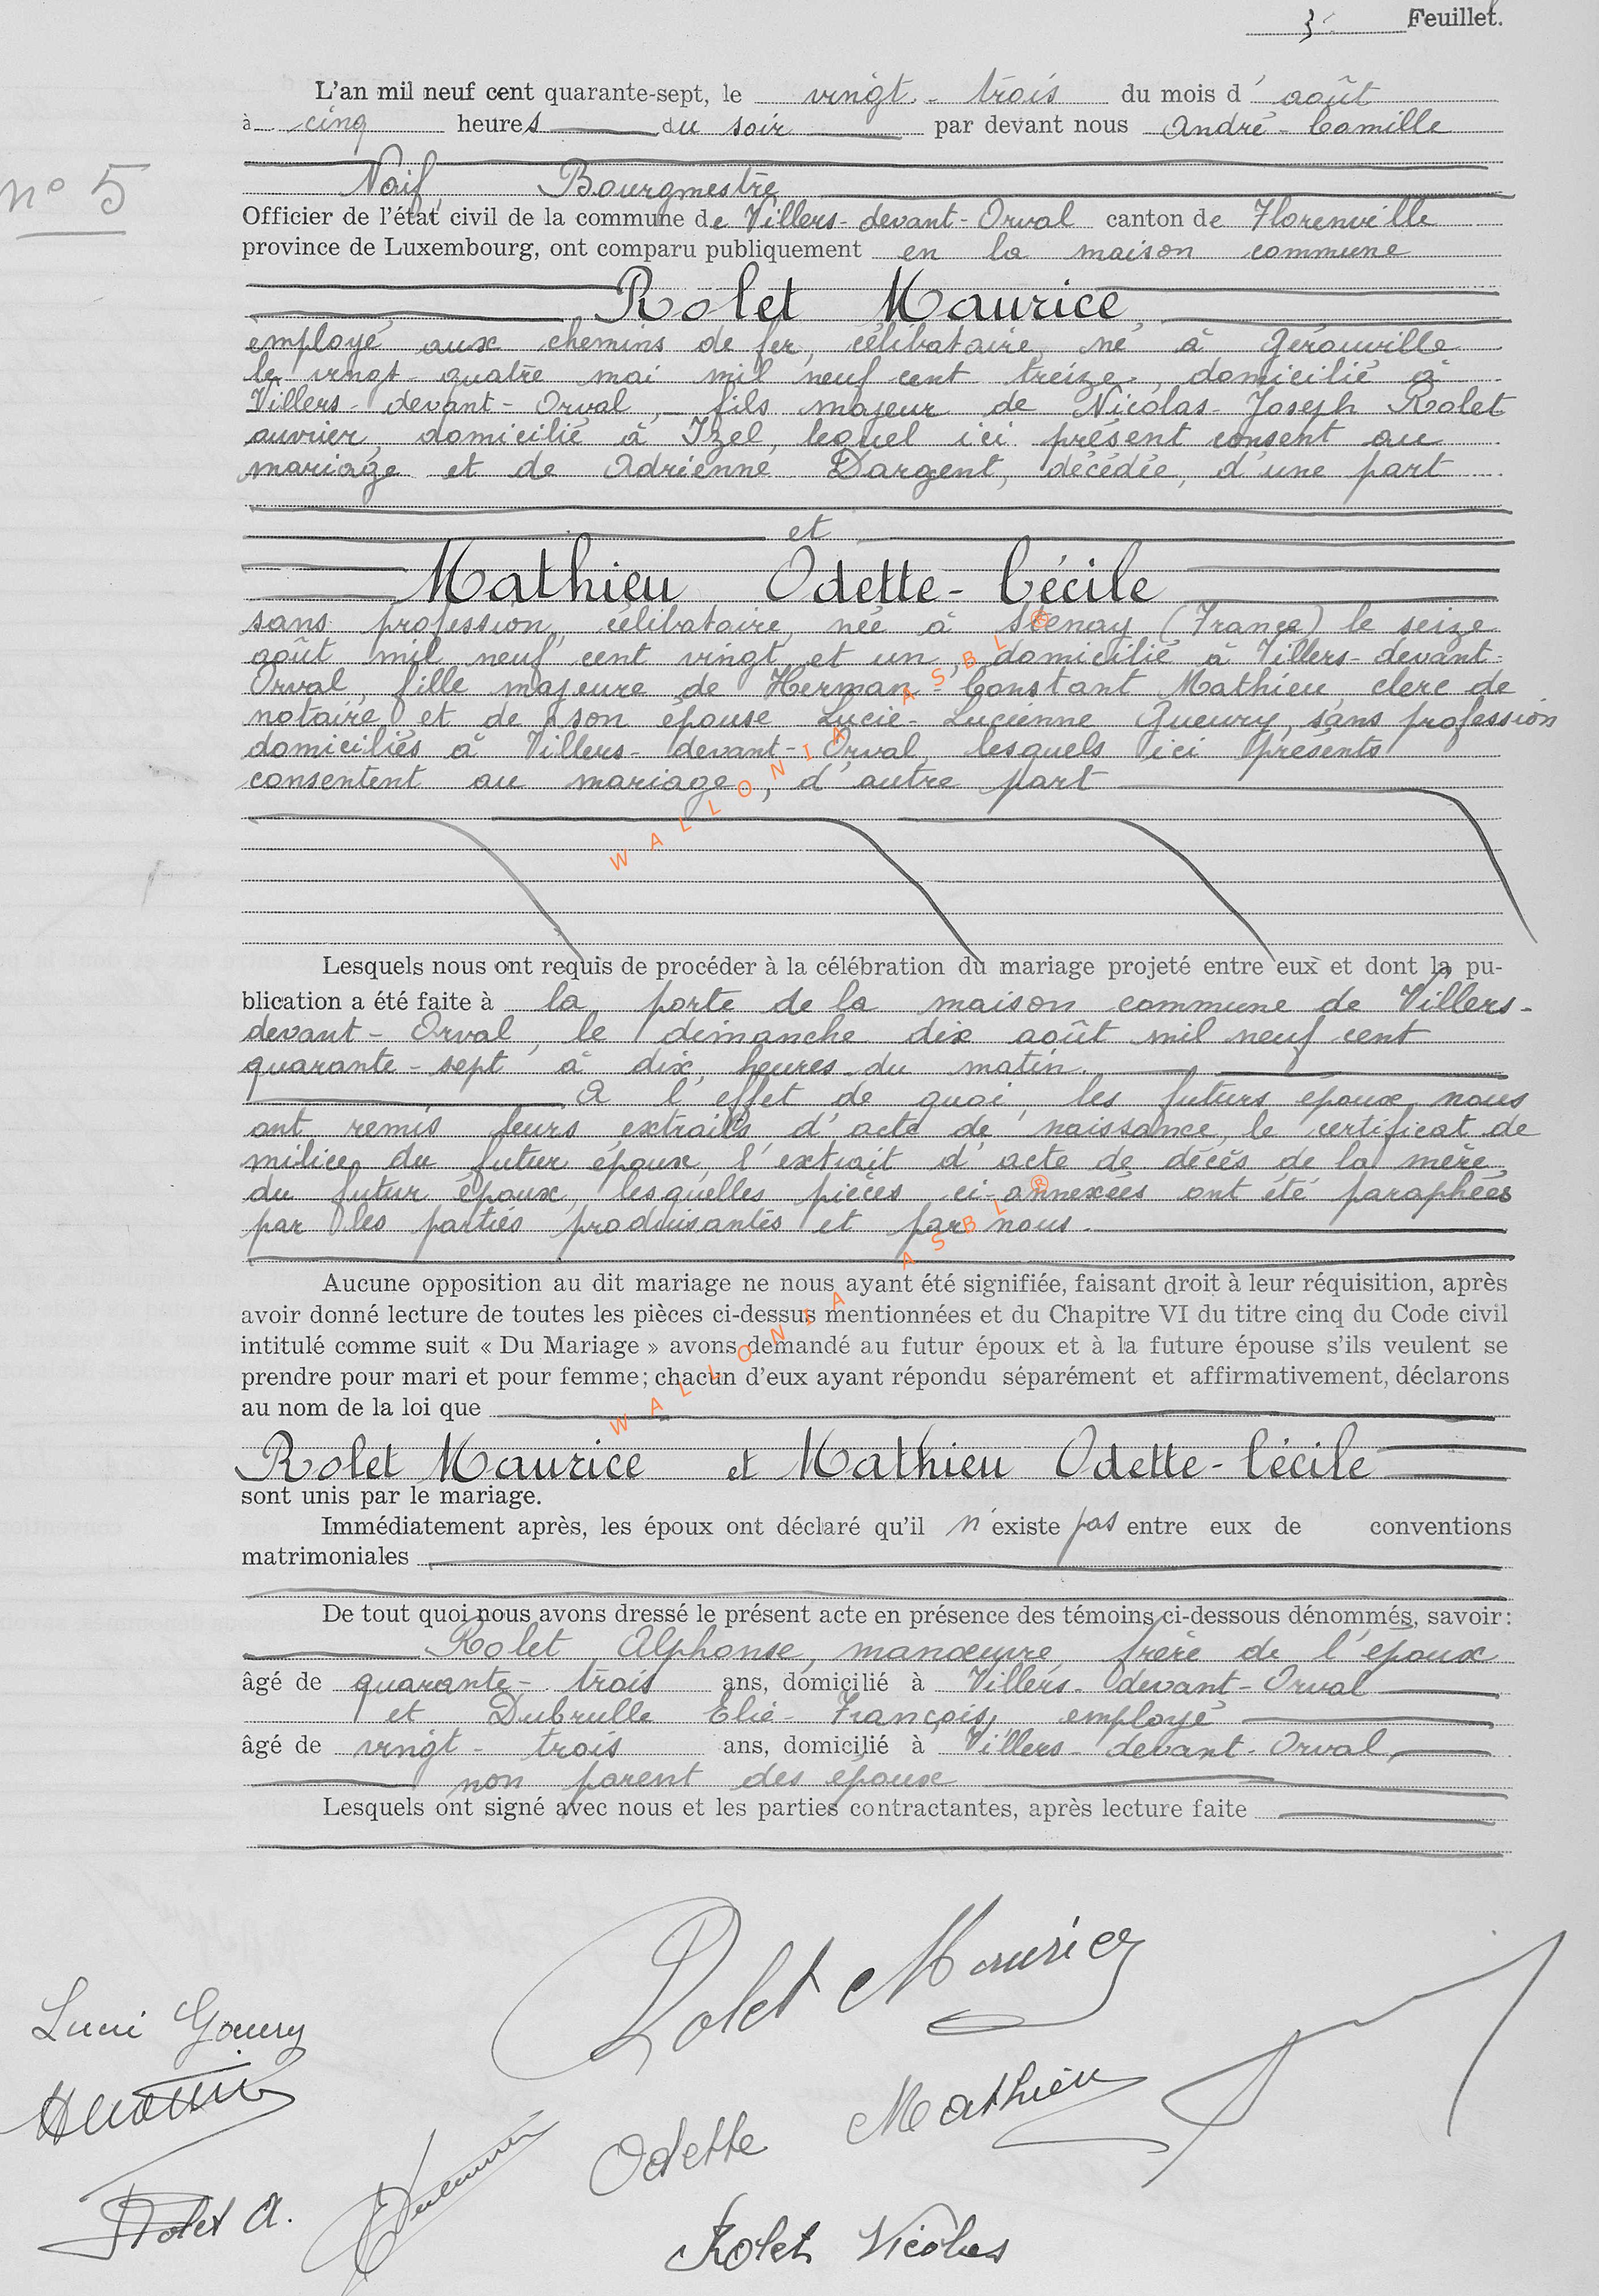 3 Feuillet.
L'an mil neuf cent quarante-sept, le vingt-trois du mois d'août
à cinq heures du soir par devant nous André-Camille
n° 5
Naif, Bourgmestre
Officier de l'état civil de la commune de Villers-devant-Orval canton de Florenville
province de Luxembourg, ont comparu publiquement en la maison commune
Rolet Maurice
employé aux chemins de fer, célibataire, né à Gérouville
le vingt-quatre mai mil neuf cent treize, domicilié à
Villers-devant-Orval, fils majeur de Nicolas-Joseph Rolet
ouvrier, domicilié à Izel, lequel ici présent consent au
mariage et de Adrienne Dargent, décédée, d'une part
et
Mathieu Odette-Cécile
sans profession, célibataire, née à Stenay (France) le seize
août mil neuf cent vingt et un, domicilié à Villers-devant-
Orval, fille majeure de Herman-Constant Mathieu, clerc de
notaire et de son épouse Lucie-Lucienne Gueury, sans profession
domiciliés à Villers-devant-Orval, lesquels ici présents
consentent au mariage, d'autre part
WALLONIA ASBL ®
Lesquels nous ont requis de procéder à la célébration du mariage projeté entre eux et dont la pu-
blication a été faite à la porte de la maison commune de Villers-
devant-Orval, le dimanche dix août mil neuf cent
quarante-sept à dix heures du matin.
A l'effet de quoi, les futurs époux nous
ont remis leurs extraits d'acte de naissance, le certificat de
milice du futur époux, l'extrait d'acte de décès de la mère
du futur époux, lesquelles pièces ci-annexées ont été paraphées
par les parties produisantes et par nous.
Aucune opposition au dit mariage ne nous ayant été signifiée, faisant droit à leur réquisition, après
avoir donné lecture de toutes les pièces ci-dessus mentionnées et du Chapitre VI du titre cinq du Code civil
intitulé comme suit « Du Mariage » avons demandé au futur époux et à la future épouse s'ils veulent se
prendre pour mari et pour femme; chacun d'eux ayant répondu séparément et affirmativement, déclarons
au nom de la loi que
WALLONIA ASBL ®
Rolet Maurice et Mathieu Odette-Cécile
sont unis par le mariage.
Immédiatement après, les époux ont déclaré qu'il n'existe pas entre eux de conventions
matrimoniales
De tout quoi nous avons dressé le présent acte en présence des témoins ci-dessous dénommés, savoir:
Rolet Alphonse, manœuvre, frère de l'époux
âgé de quarante-trois ans, domicilié à Villers-devant-Orval
et Dubrulle Elie-François, employé
âgé de vingt-trois ans, domicilié à Villers-devant-Orval,
non parent des époux
Lesquels ont signé avec nous et les parties contractantes, après lecture faite
Rolet Maurice
Odette Mathieu
Rolet A.
Rolet Nicolas